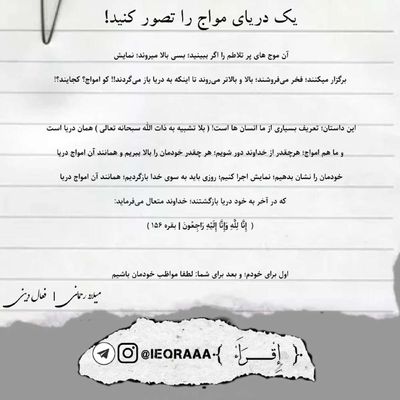 یک دریای مواج را تصور کنید!
آن موج های پر تلاطم را اگر ببینید؛ بسی بالا میروند؛ نمایش
برگزار میکنند؛ فخر می‌فروشند؛ بالا و بالاتر می‌روند تا اینکه به دریا باز می‌گردند!! کو امواج؟ کجایند؟!
این داستان؛ تعریف بسیاری از ما انسان ها است! ( بلا تشبیه به ذات الله سبحانه تعالی ) همان دریا است
و ما هم امواج؛ هرچقدر از خداوند دور شویم؛ هر چقدر خودمان را بالا ببریم و همانند آن امواج دریا
خودمان را نشان بدهیم؛ نمایش اجرا کنیم؛ روزی باید به سوی خدا بازگردیم؛ همانند آن امواج دریا
که در آخر به خود دریا بازگشتند؛ خداوند متعال می‌فرماید:
( إِنَّا لِلَّهِ وَإِنَّا إِلَيْهِ رَاجِعُونَ | بقره ۱۵۶ )
اول برای خودم؛ و بعد برای شما: لطفا مواظب خودمان باشیم
میلاد رحمانی | فعال دینی
@IEQRAAA ﴿ إِقْـرَأْ ﴾